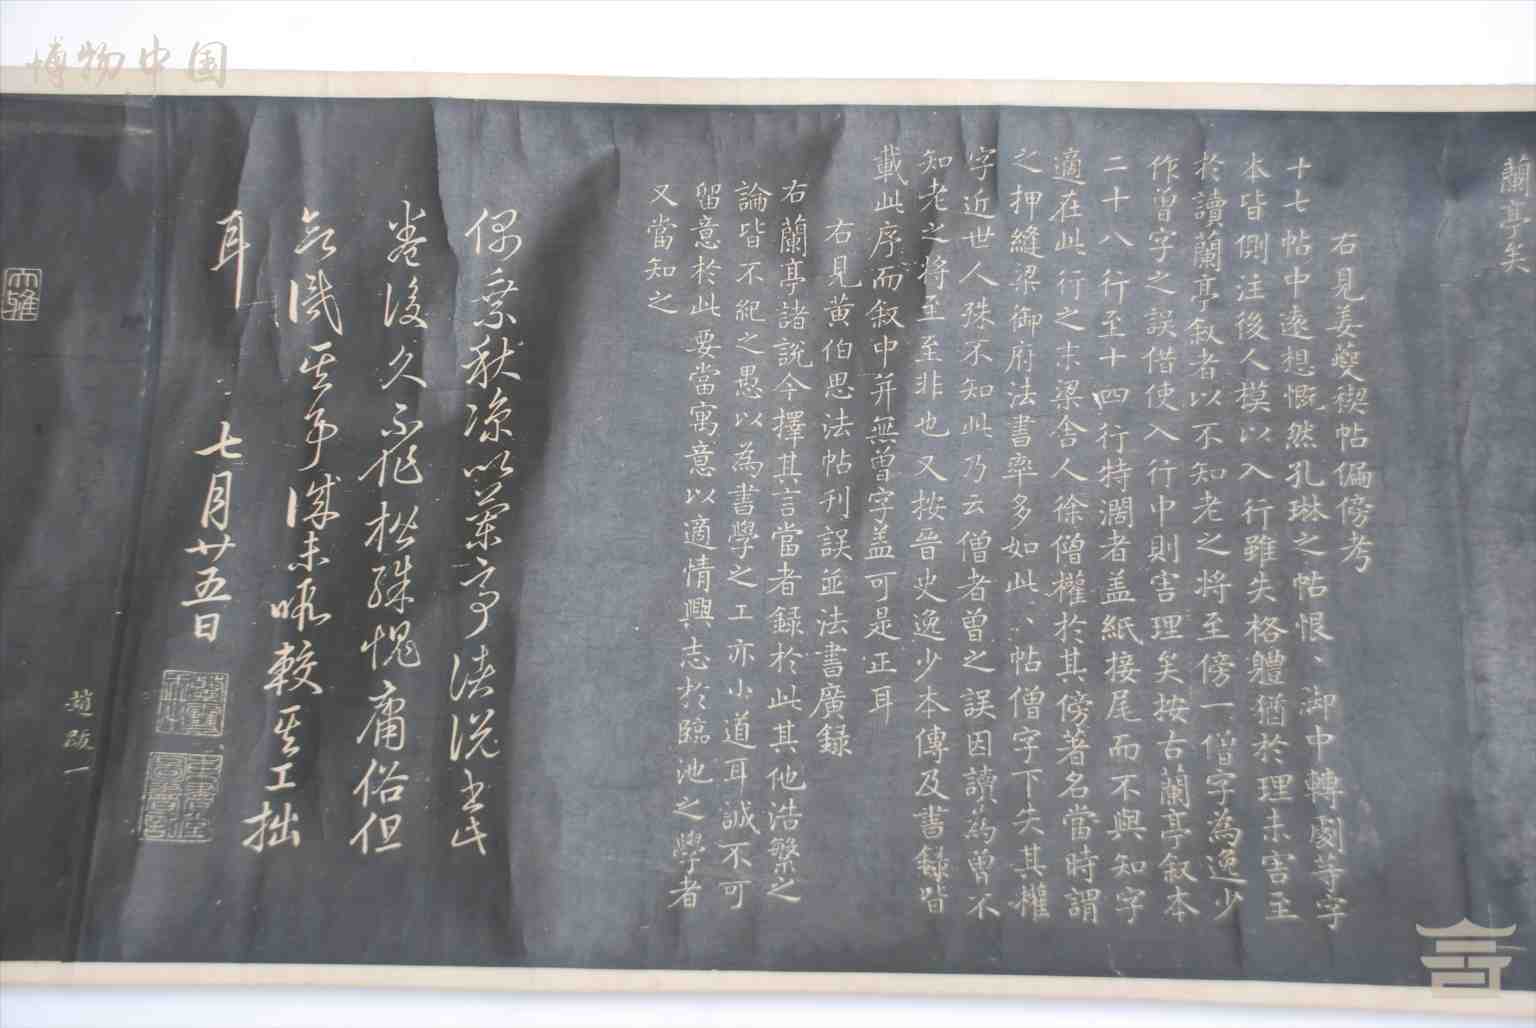 博物中国
蘭亭矣
右見姜夔禊帖偏傍考
十七帖中遠想慨然孔琳之帖恨、御中轉劇等字
本皆側注後人模以入行雖失格軆猶於理未害至
於讀蘭亭叙者以不知老之將至傍一僧字為逸少
作曾字之誤借使入行中則害理矣按古蘭亭叙本
二十八行至十四行特濶者盖紙接尾而不與知字
適在此行之末梁舍人徐僧權於其傍著名當時謂
之押縫梁御府法書率多如此、、帖僧字下失其權
字近世人殊不知此乃云僧者曾之誤因讀為曾不
知老之將至至非也又按晉史逸少本傳及書録皆
載此序而叙中并無曾字盖可是正耳
右見黄伯思法帖刊誤並法書廣録
右蘭亭諸說今擇其言當者録於此其他浩繁之
論皆不紀之愚以為書學之工亦小道耳誠不可
留意於此要當寓意以適情興志於臨池之學者
又當知之
偶乘秋凉以蘭亭諸說書
卷後久不作楷殊愧庸俗但
無求工拙
耳
七月廿五日
大雅
趙跋一